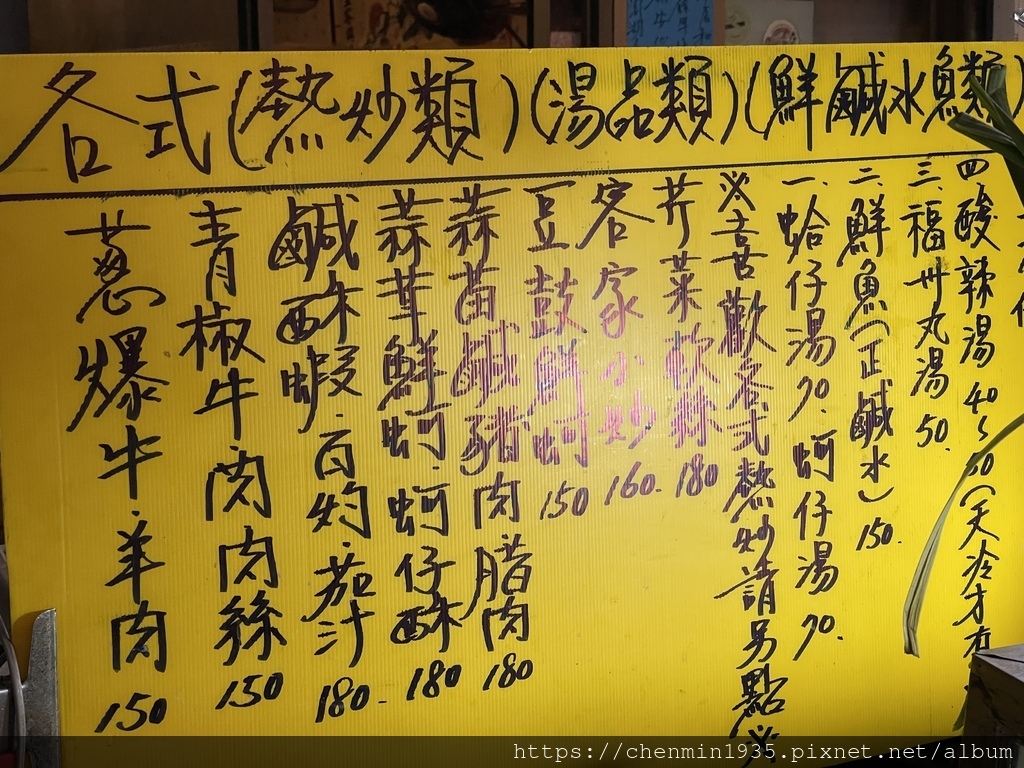 各式(熱炒類)(湯品類)(鮮鹹水魚類)
四酸辣湯40~50(天冷才有
三.福州丸湯50.
二.鮮魚(正鹹水)150.
一.蛤仔湯70.蚵仔湯70.
※喜歡各式熱炒請另點※
芹菜軟絲180
客家小炒160.
豆鼓鮮蚵150
蒜苗鹹豬肉腊肉180
蒜蓉鮮蚵.蚵仔酥180
鹹酥蝦.百灼.茄汁180.
青椒牛肉肉絲150
蔥爆牛.羊肉150
https://chenmin1935.pixnet.net/album